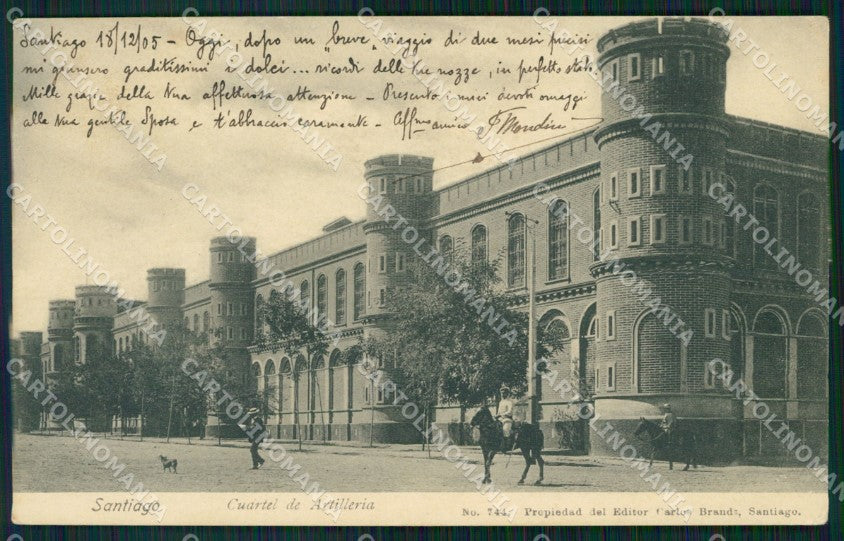 Santiago 18/12/05 - Oggi, dopo un "breve" viaggio di due mesi precisi
mi giunsero graditissimi i dolci... ricordi delle tue nozze, in perfetto stato.
Mille grazie della tua affettuosa attenzione - Presenta i miei devoti omaggi
alla tua gentile Sposa e t'abbraccio caramente - Affmo amico
Santiago.
Cuartel de Artilleria
No. 744. Propiedad del Editor Carlos Brandt, Santiago.
CARTOLINOMANIA.COM